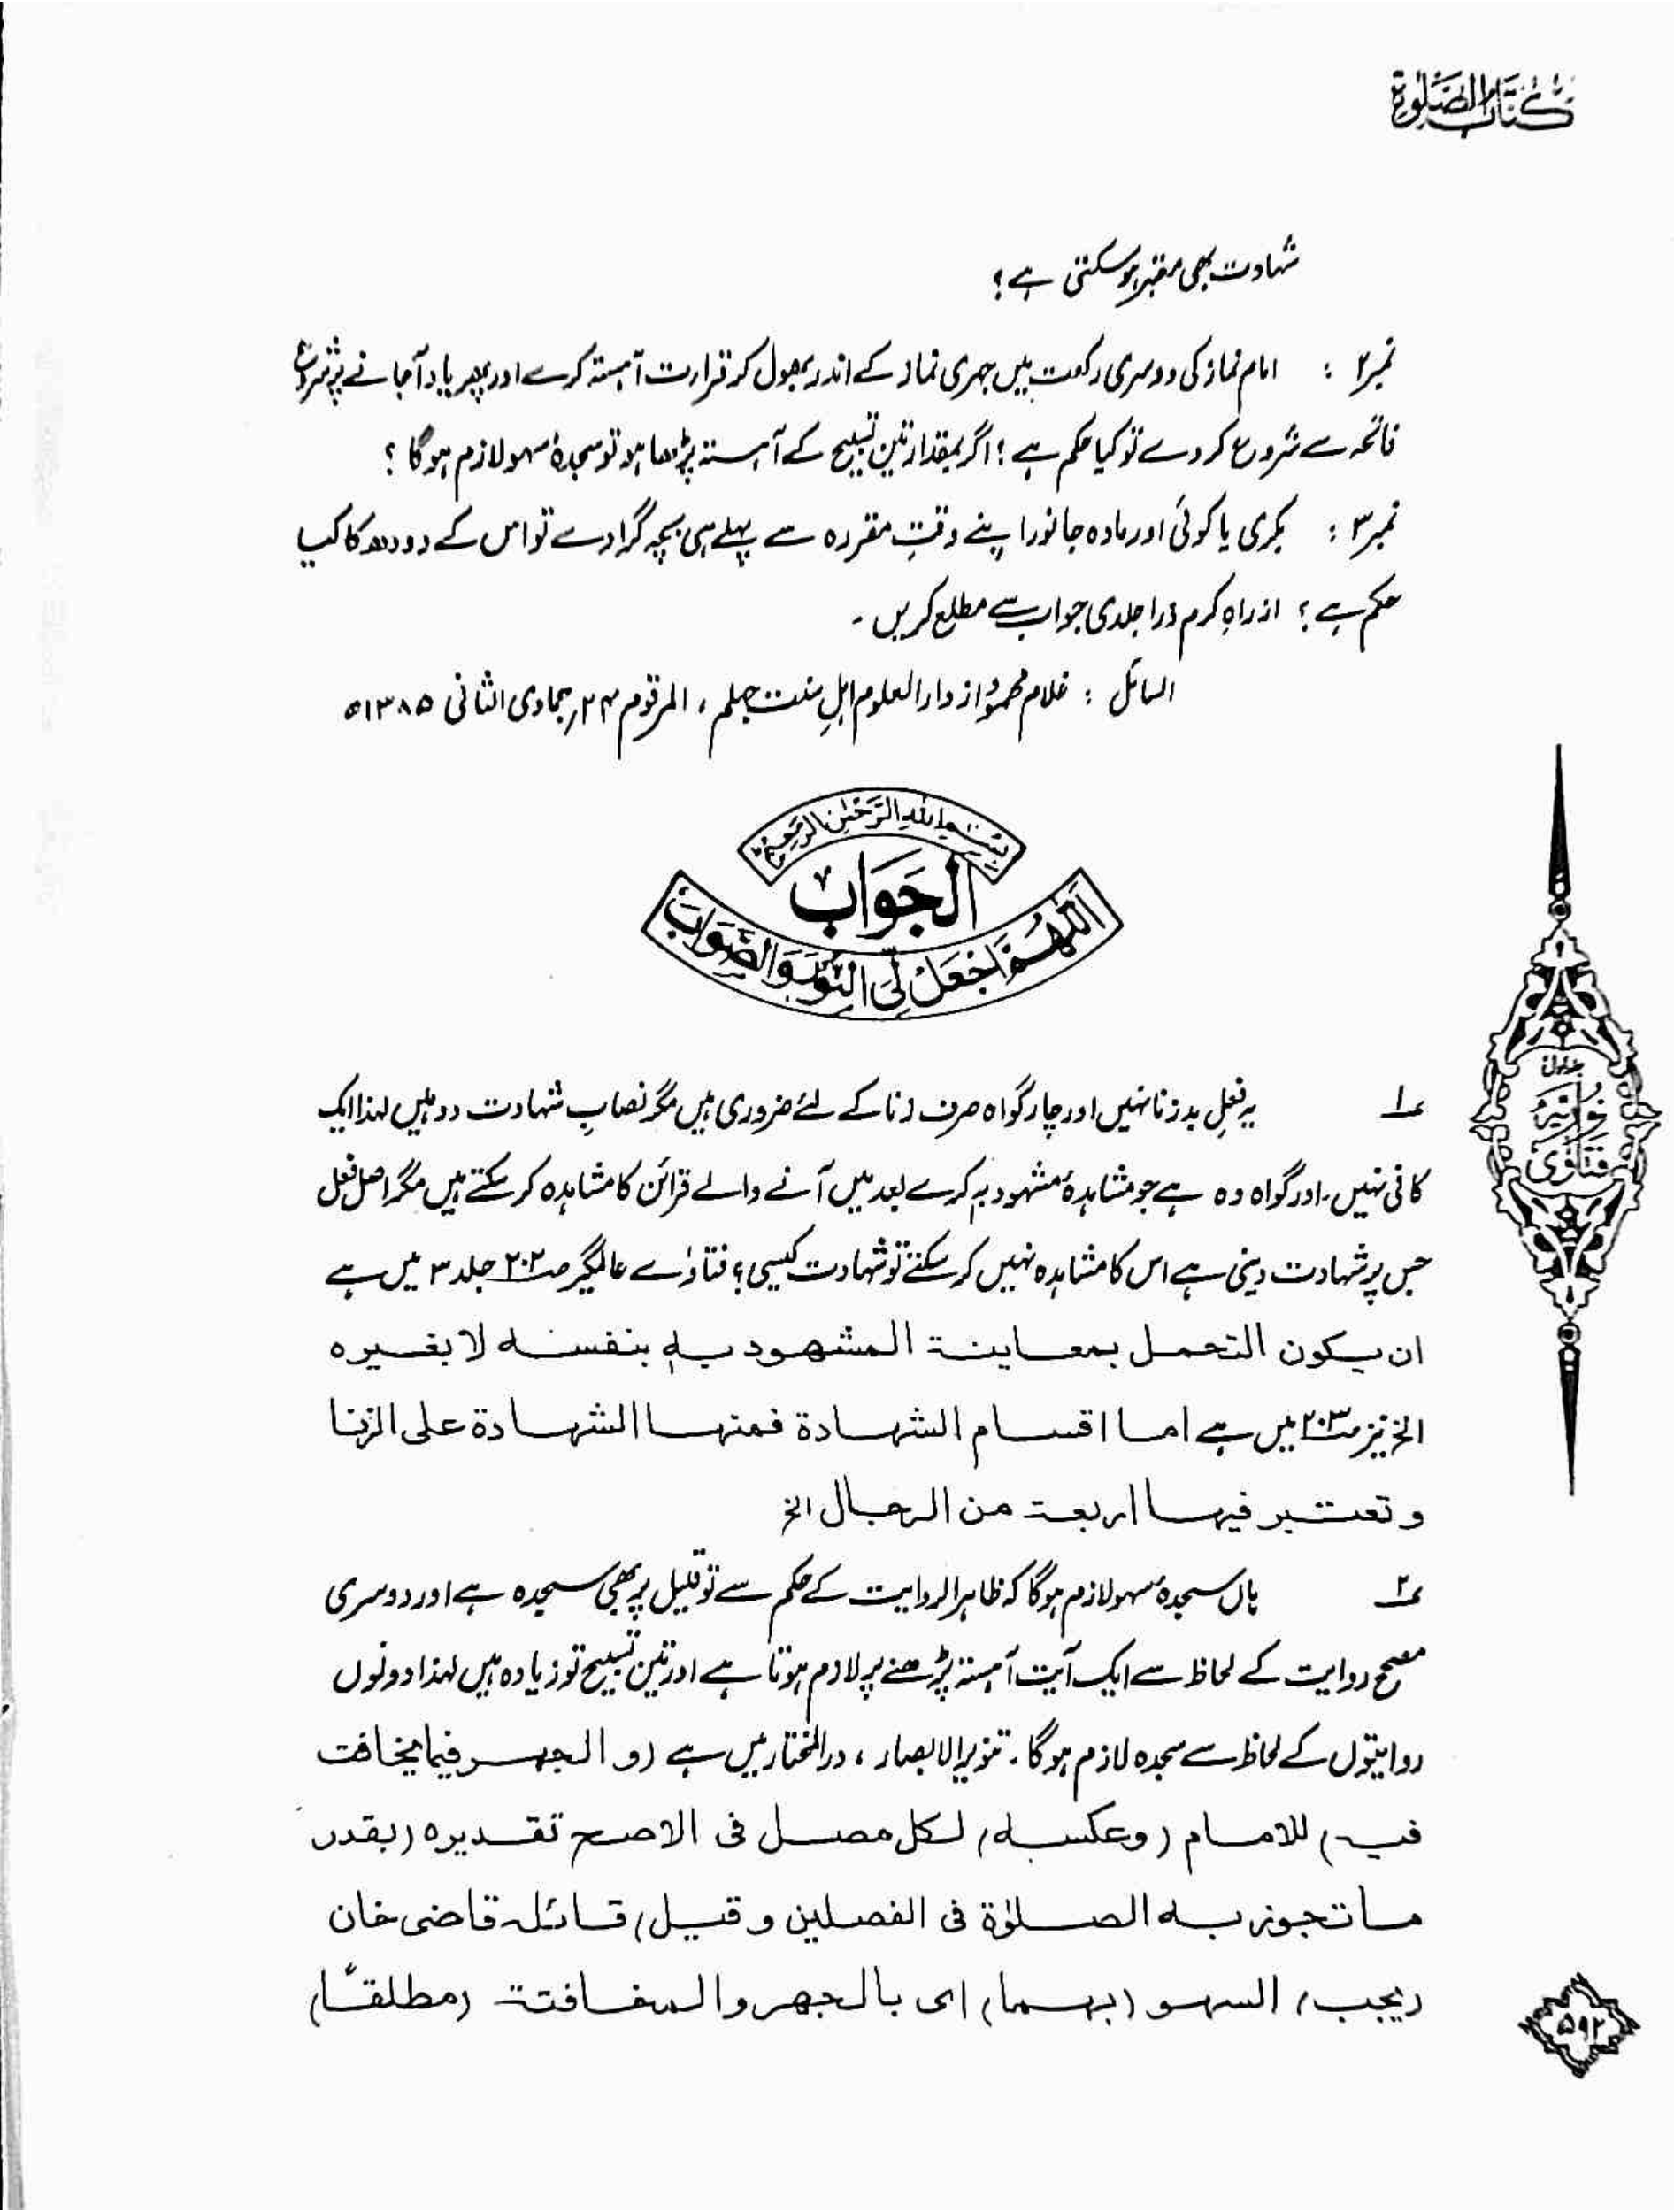 کتاب الصلوٰۃ
شہادت بھی معتبر ہو سکتی ہے؟
نمبر۲ : امام نماز کی دوسری رکعت میں جہری نماز کے اندر بھول کر قرارت آہستہ کرے اور پھر یاد آجانے پر شروع
فاتحہ سے شروع کر دے تو کیا حکم ہے؟ اگر بمقدار تین تسبیح کے آہستہ پڑھا ہو تو سجدۂ سہو لازم ہوگا ؟
نمبر۳ : بکری یا کوئی اور مادہ جانور اپنے وقتِ مقررہ سے پہلے ہی بچہ گرا دے تو اس کے دودھ کا کیا
حکم ہے؟ ازراہِ کرم ذرا جلدی جواب سے مطلع کریں۔
السائل : غلام محمود از دار العلوم اہلِ سنت جہلم ، المرقوم ۲۴؍جمادی الثانی ۱۳۸۵ھ
بِسْمِ اللّٰهِ الرَّحْمٰنِ الرَّحِيْمِ
الجَوَابُ
اَللّٰهُمَّ اجْعَلْ لِّیَ النُّوْرَ وَالصَّوَابَ
؏۱ یہ فعلِ بد زنا نہیں اور چار گواہ صرف زنا کے لئے ضروری ہیں مگر نصابِ شہادت دو ہیں لہذا ایک
کافی نہیں، اور گواہ وہ ہے جو مشاہدۂ مشہود بہ کرے بعد میں آنے والے قرائن کا مشاہدہ کر سکتے ہیں مگر اصل فعل
جس پر شہادت دینی ہے اس کا مشاہدہ نہیں کر سکتے تو شہادت کیسی؟ فتاوٰے عالمگیر ص۲۰۲ جلد ۳ میں ہے
ان یکون التحمل بمعاینۃ المشھود بہ بنفسہ لا بغیرہ
الخ نیز ص۲۰۳ میں ہے اما اقسام الشھادۃ فمنھا الشھادۃ علی الزنا
و تعتبر فیھا اربعۃ من الرجال الخ
؏۲ ہاں سجدۂ سہو لازم ہوگا کہ ظاہر الروایت کے حکم سے تو قلیل پر بھی سجدہ ہے اور دوسری
مصحح روایت کے لحاظ سے ایک آیت آہستہ پڑھنے پر لازم ہوتا ہے اور تین تسبیح تو زیادہ ہیں لہذا دونوں
روایتوں کے لحاظ سے سجدہ لازم ہوگا۔ تنویر الابصار ، در المختار میں ہے (و الجھر فیما یخافت
فیہ) للامام (وعکسہ) لکل مصل فی الاصح تقدیرہ (بقدر
ما تجوز بہ الصلوٰۃ فی الفصلین و قیل) قائلہ قاضی خان
(یجب) السھو (بھما) ای بالجھر و المخافتۃ (مطلقًا)
جلد اول
فتاوٰی نوریہ
۵۹۲